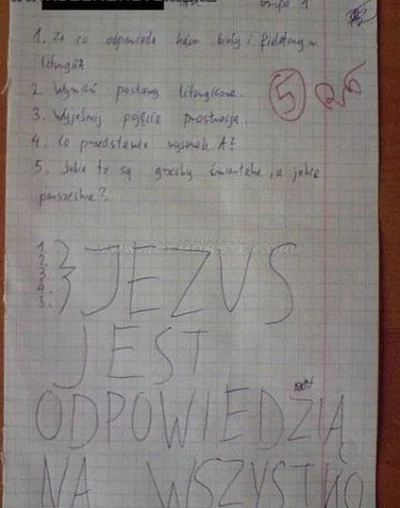 Grupa 1
1. Za co odpowiada kolor biały i fioletowy w
liturgii?
2. Wymień postawy liturgiczne.
3. Wyjaśnij pojęcie prostracja.
4. Co przedstawia rysunek A?
5. Jakie to są grzechy śmiertelne, a jakie
powszednie?
5
1. 2. 3. 4. 5. } JEZUS
JEST
ODPOWIEDZIĄ
NA WSZYSTKO